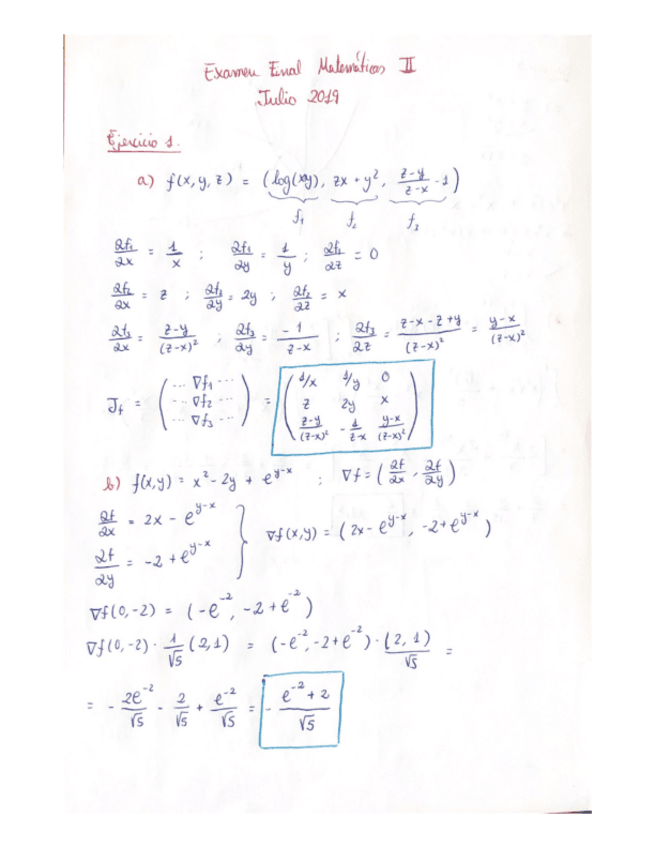 Examen Final Matemáticas II
Julio 2019
Ejercicio 1.
a) f(x,y,z) = (log(xy), zx + y², (z-y)/(z-x) - 1)
f₁ f₂ f₃
∂f₁/∂x = 1/x ; ∂f₁/∂y = 1/y ; ∂f₁/∂z = 0
∂f₂/∂x = z ; ∂f₂/∂y = 2y ; ∂f₂/∂z = x
∂f₃/∂x = (z-y)/(z-x)² ; ∂f₃/∂y = -1/(z-x) ; ∂f₃/∂z = (z-x-z+y)/(z-x)² = (y-x)/(z-x)²
J_f = (... ∇f₁ ... / ... ∇f₂ ... / ... ∇f₃ ...) = (1/x 1/y 0 / z 2y x / (z-y)/(z-x)² -1/(z-x) (y-x)/(z-x)²)
b) f(x,y) = x² - 2y + e^(y-x) ; ∇f = (∂f/∂x, ∂f/∂y)
∂f/∂x = 2x - e^(y-x)
∂f/∂y = -2 + e^(y-x)
∇f(x,y) = (2x - e^(y-x), -2 + e^(y-x))
∇f(0,-2) = (-e^-2, -2 + e^-2)
∇f(0,-2) · 1/√5 (2,1) = (-e^-2, -2 + e^-2) · (2,1)/√5 =
= - 2e^-2/√5 - 2/√5 + e^-2/√5 = - (e^-2 + 2)/√5